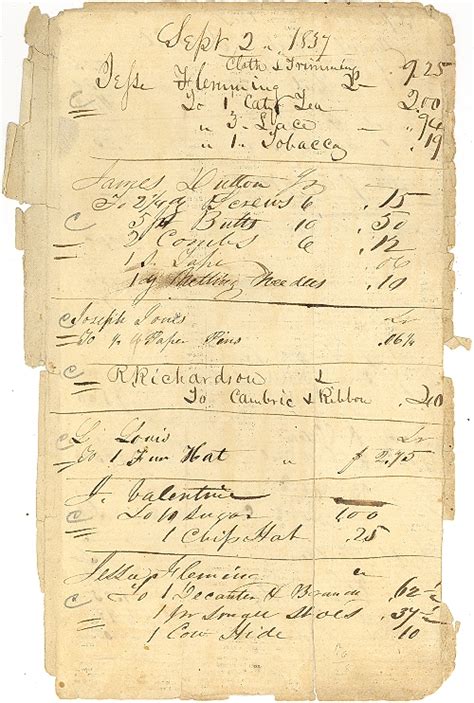 Sept 2 1837
Cloth & Trimming
Jesse Flemming 9.25
To 1 Catty Tea 2.00
" 3 Lace - .94
" 1 Tobacco .19
James Dutton Jr
To 2 Screws 6 .15
5 pr Butts 10 .50
2 Combs 6 .12
1 Tape .06
1 Needles .10
Joseph Jones Dr
To Paper Pins .06¼
R Richardson
To Cambric & Ribbon .20
L. Louis Dr
To 1 Fur Hat " 2.75
J. Valentine
To 10 Sugar 1.00
1 Chip Hat .25
Jessup Fleming
To 1 Decanter 62½
1 pr Small Shoes .37½
1 Cow Hide 10